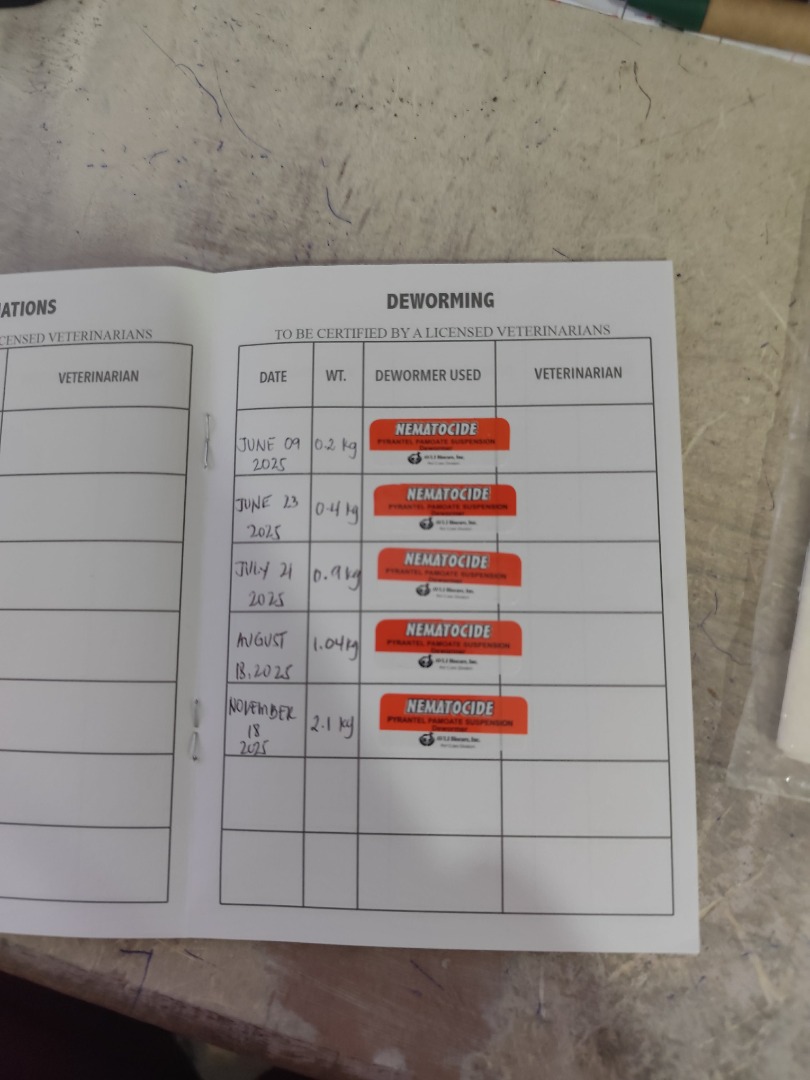 IATIONS
CENSED VETERINARIANS
VETERINARIAN
DEWORMING
TO BE CERTIFIED BY A LICENSED VETERINARIANS
DATE WT. DEWORMER USED VETERINARIAN
JUNE 09 2025 0.2 kg NEMATOCIDE
PYRANTEL PAMOATE SUSPENSION
Dewormer
JUNE 23 2025 0.4 kg NEMATOCIDE
PYRANTEL PAMOATE SUSPENSION
Dewormer
JULY 21 2025 0.9 kg NEMATOCIDE
PYRANTEL PAMOATE SUSPENSION
Dewormer
AUGUST 18, 2025 1.04 kg NEMATOCIDE
PYRANTEL PAMOATE SUSPENSION
Dewormer
NOVEMBER 18 2025 2.1 kg NEMATOCIDE
PYRANTEL PAMOATE SUSPENSION
Dewormer